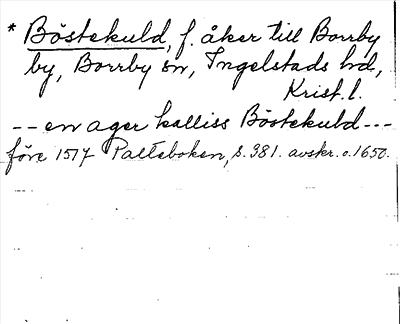 * Böstekuld, f. åker till Borrby
by, Borrby sn, Ingelstads hd,
Krist. l.
-- en ager kalliss Böstekuld ---
före 1517 Palteboken, s. 381. avskr. o. 1650.